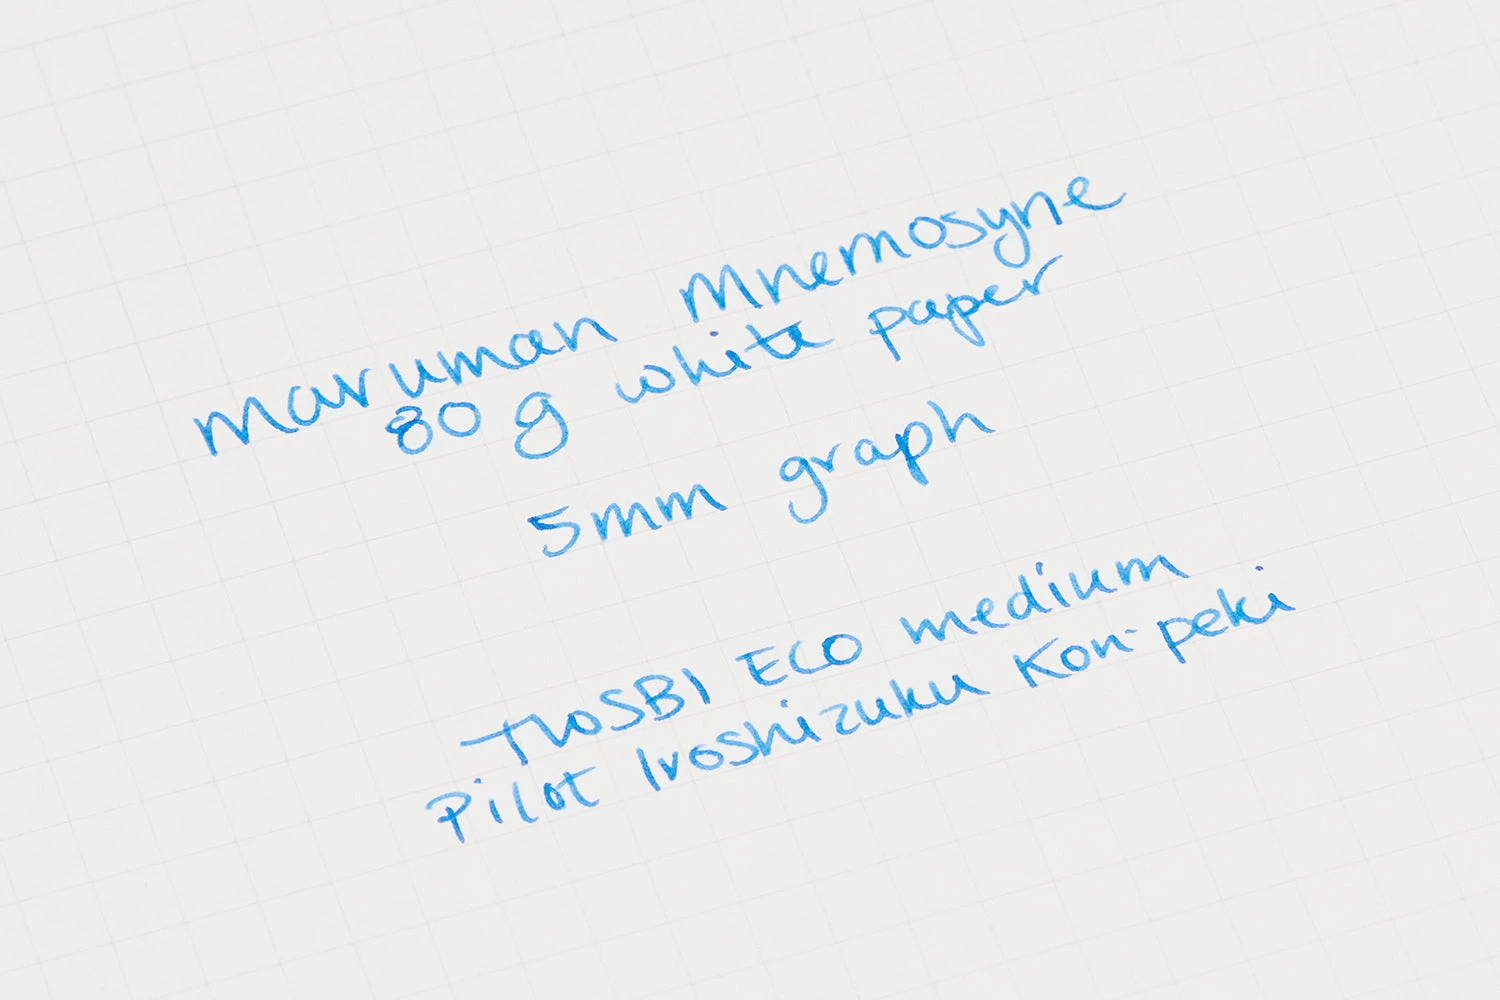 Maruman Mnemosyne
80 g white paper
5mm graph
TWSBI ECO medium
Pilot Iroshizuku Kon-peki